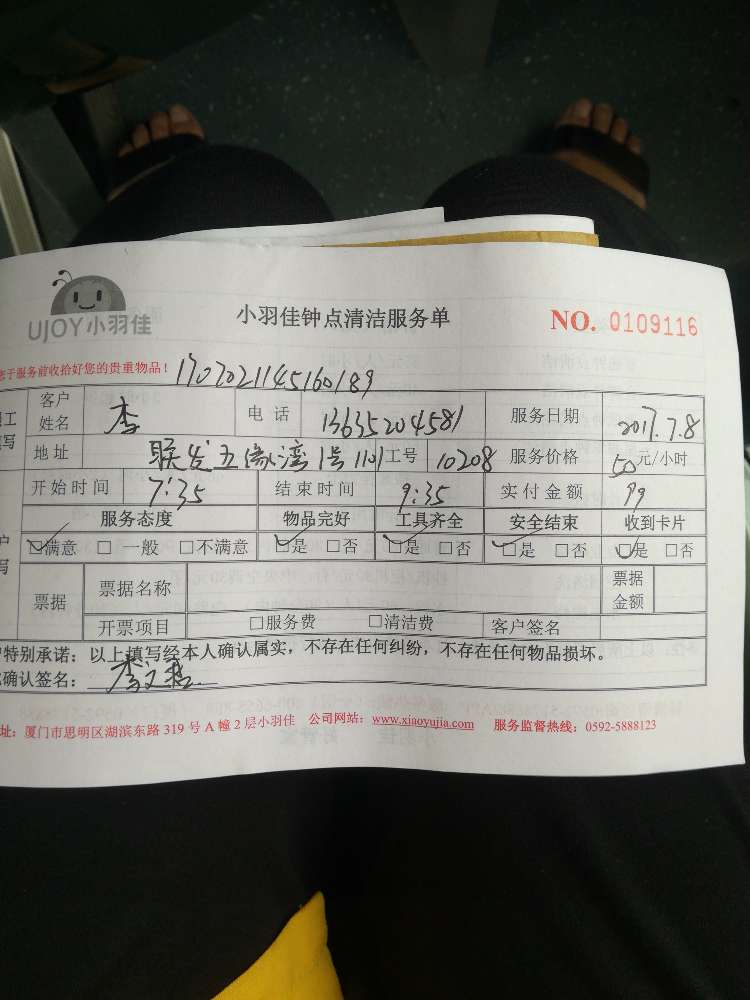 UJOY小羽佳
小羽佳钟点清洁服务单
NO. 0109116
于服务前收拾好您的贵重物品!
1707021145160189
客户姓名 李 电话 13635204581 服务日期 2017.7.8
地址 联发五缘湾1号1101 工号 10208 服务价格 50元/小时
开始时间 7:35 结束时间 9:35 实付金额 99
服务态度 物品完好 工具齐全 安全结束 收到卡片
☑满意 □一般 □不满意 ☑是 □否 ☑是 □否 ☑是 □否 ☑是 □否
票据 票据名称 票据金额
开票项目 □服务费 □清洁费 客户签名
特别承诺:以上填写经本人确认属实,不存在任何纠纷,不存在任何物品损坏。
确认签名:李
址:厦门市思明区湖滨东路 319 号 A 幢 2 层小羽佳 公司网站:www.xiaoyujia.com 服务监督热线:0592-5888123